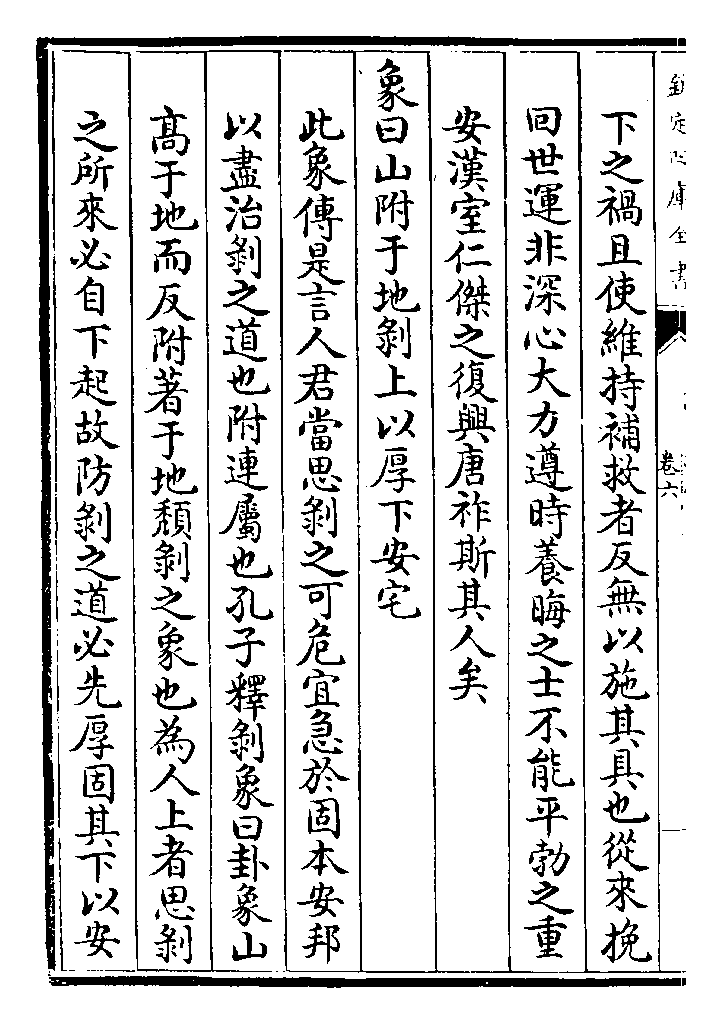 欽定四庫全書
卷六
下之禍且使維持補救者反無以施其具也從來挽
回世運非深心大力遵時養晦之士不能平勃之重
安漢室仁傑之復興唐祚斯其人矣
象曰山附于地剝上以厚下安宅
此象傳是言人君當思剝之可危宜急於固本安邦
以盡治剝之道也附連屬也孔子釋剝象曰卦象山
高于地而反附著于地頽剝之象也為人上者思剝
之所來必自下起故防剝之道必先厚固其下以安